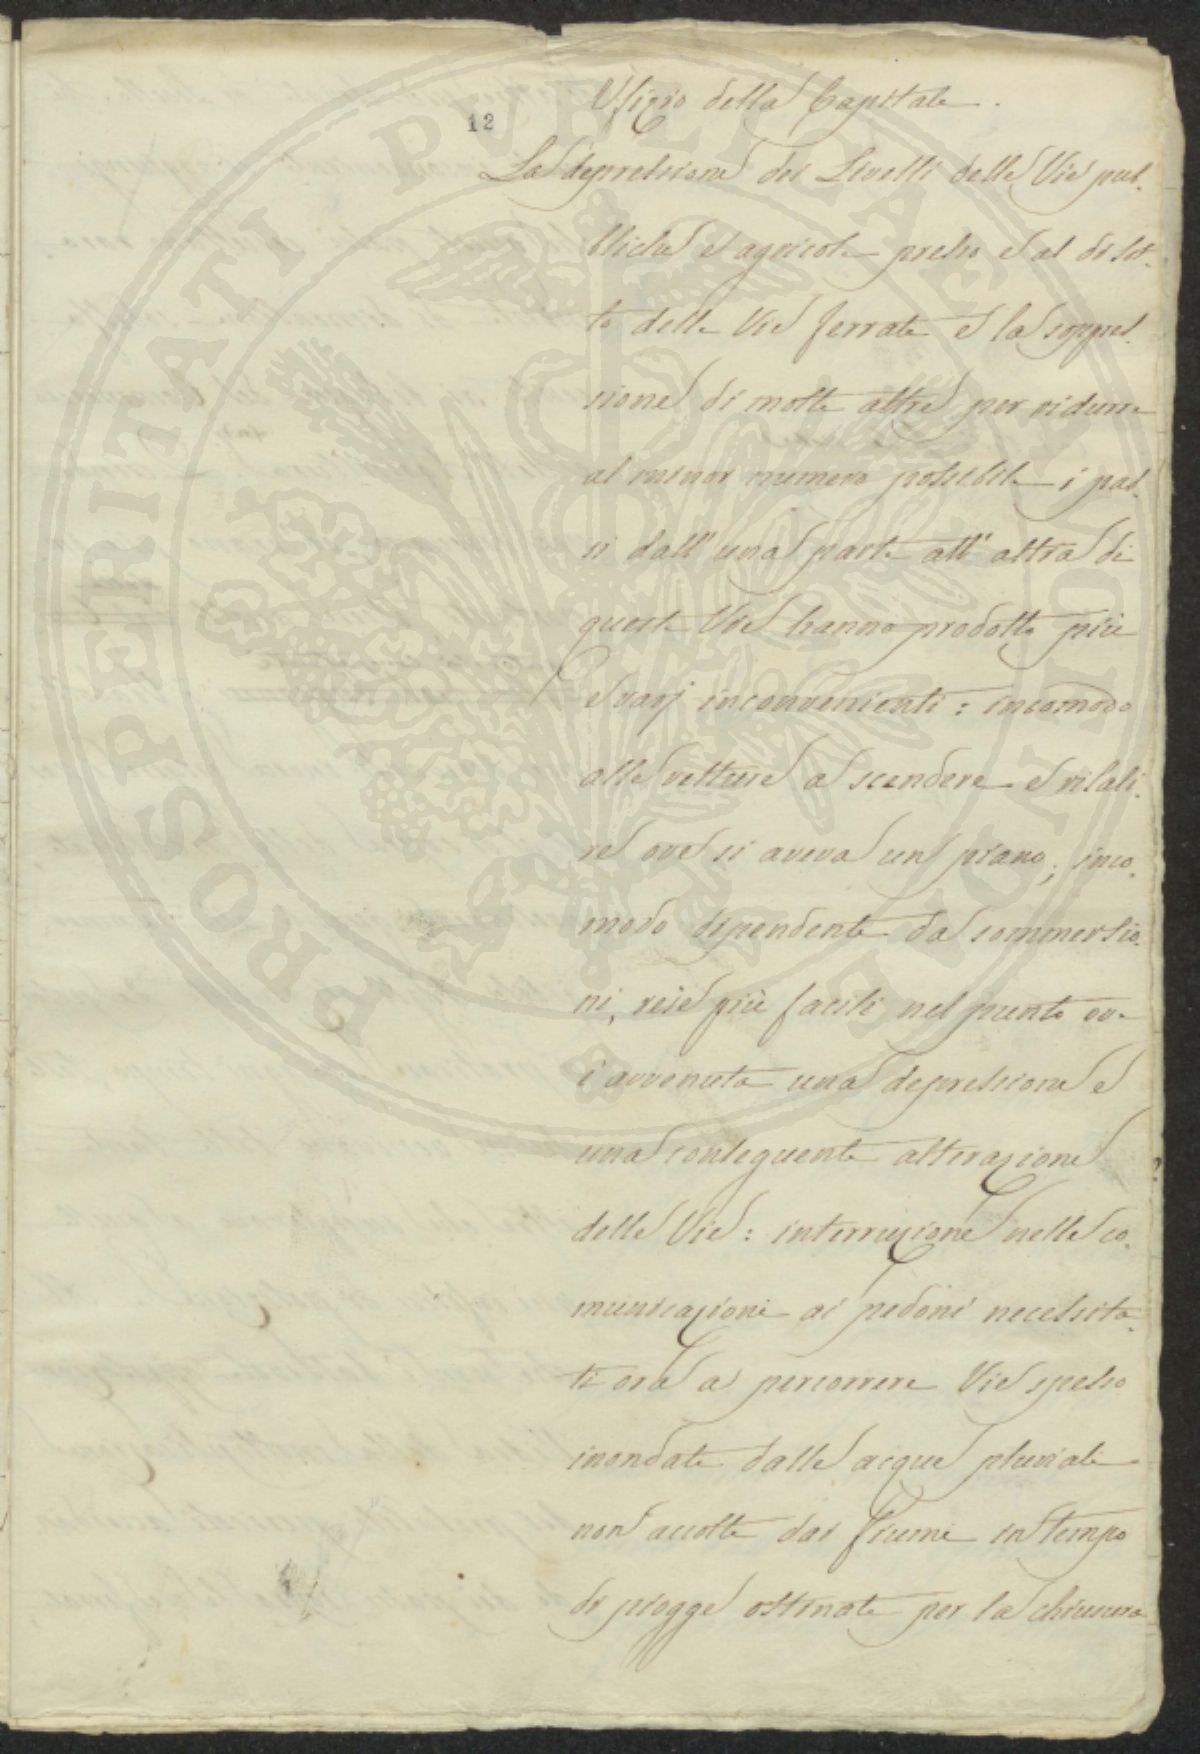 Ufizio della Capitale.
12
La depressione dei Livelli delle Vie pub-
bliche e agricole presso e al di sot-
to delle Vie ferrate e la soppres-
sione di molte altre per ridurre
al minor numero possibile i pas-
si dall'una parte all'altra di
queste Vie hanno prodotto più
e varj inconvenienti: incomodo
alle vetture a scendere e risali-
re ove si aveva un piano; inco-
modo dipendente da sommersio-
ni, rese più facili nel punto ov-
è avvenuta una depressione e
una conseguente alterazione
delle Vie: interruzione nelle co-
municazioni ai pedoni necessita-
ti ora a percorrere Vie spesso
inondate dalle acque pluviali
non accolte dai fiumi in tempo
di piogge ostinate per la chiusura
PROSPERITATI PVBLICAE